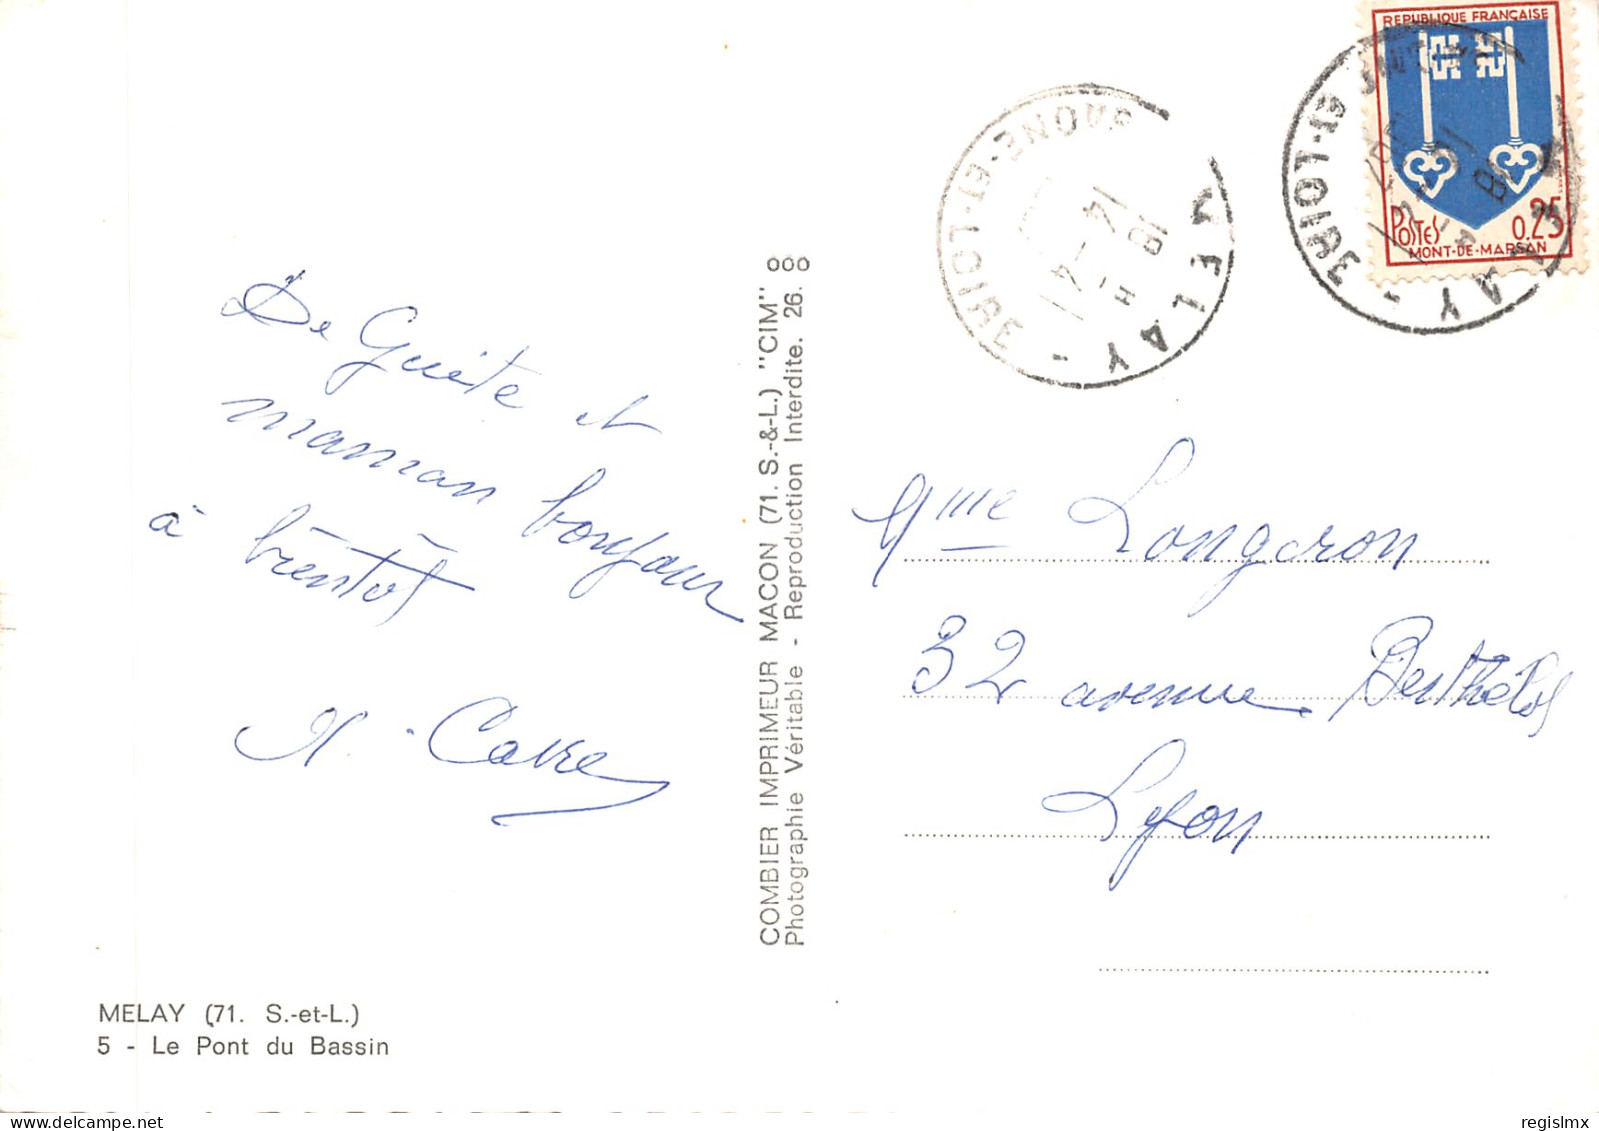 De Guite et
maman bonjour
à bientôt
MELAY (71. S.-et-L.)
5 - Le Pont du Bassin
COMBIER IMPRIMEUR MACON (71. S.-&-L.) "CIM"
Photographie Véritable - Reproduction Interdite. 26. 000
SAONE-ET-LOIRE
MELAY -
18 H
14 - 4
REPUBLIQUE FRANÇAISE
POSTES 0,25
MONT-DE-MARSAN
ET-LOIRE -
Mme Longeron
32 avenue Berthelot
Lyon
regislmx